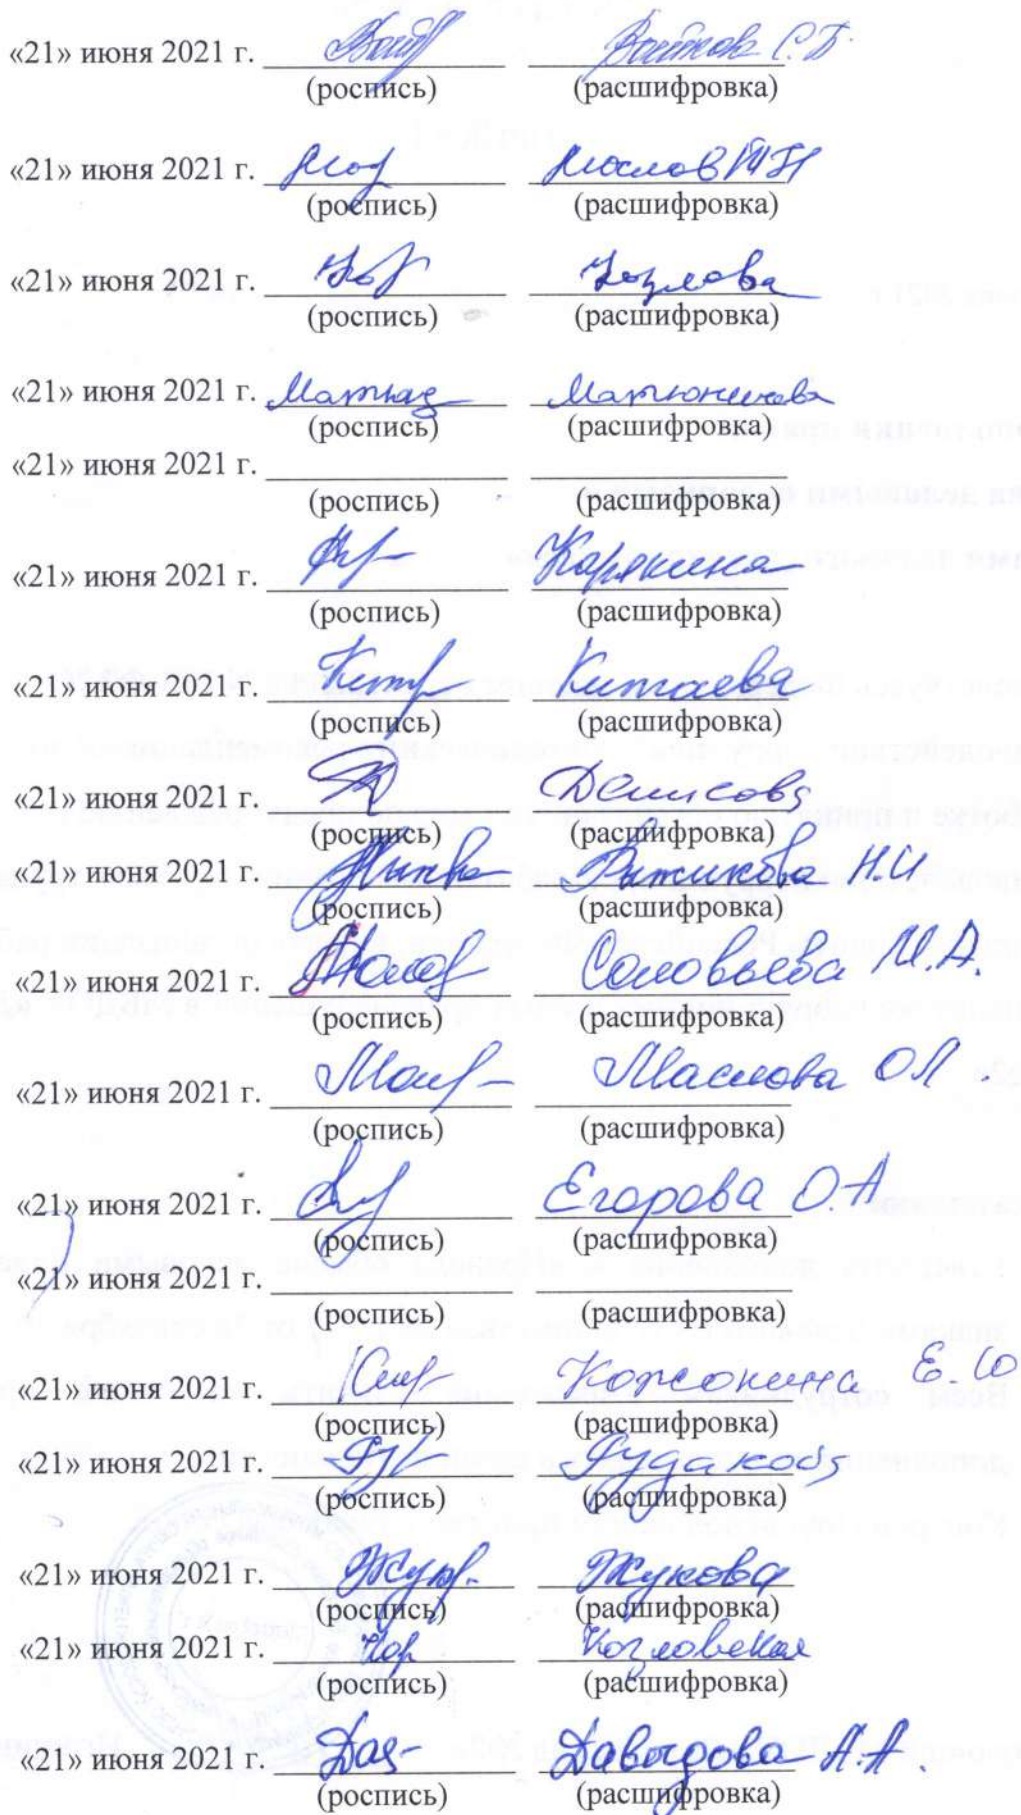 «21» июня 2021 г. Войтов С.Б.
(роспись) (расшифровка)
«21» июня 2021 г. Маслов
(роспись) (расшифровка)
«21» июня 2021 г. Козлова
(роспись) (расшифровка)
«21» июня 2021 г. Матюшкова
(роспись) (расшифровка)
«21» июня 2021 г.
(роспись) (расшифровка)
«21» июня 2021 г. Карякина
(роспись) (расшифровка)
«21» июня 2021 г. Китаева
(роспись) (расшифровка)
«21» июня 2021 г. Денисова
(роспись) (расшифровка)
«21» июня 2021 г. Н.И
(роспись) (расшифровка)
«21» июня 2021 г. Соловьева М.А.
(роспись) (расшифровка)
«21» июня 2021 г. Маслова ОЛ.
(роспись) (расшифровка)
«21» июня 2021 г. Егорова О.А
(роспись) (расшифровка)
«21» июня 2021 г.
(роспись) (расшифровка)
«21» июня 2021 г. Е.Ю
(роспись) (расшифровка)
«21» июня 2021 г. Рудакова
(роспись) (расшифровка)
«21» июня 2021 г. Жукова
(роспись) (расшифровка)
«21» июня 2021 г. Козловская
(роспись) (расшифровка)
«21» июня 2021 г. Давыдова А.А.
(роспись) (расшифровка)